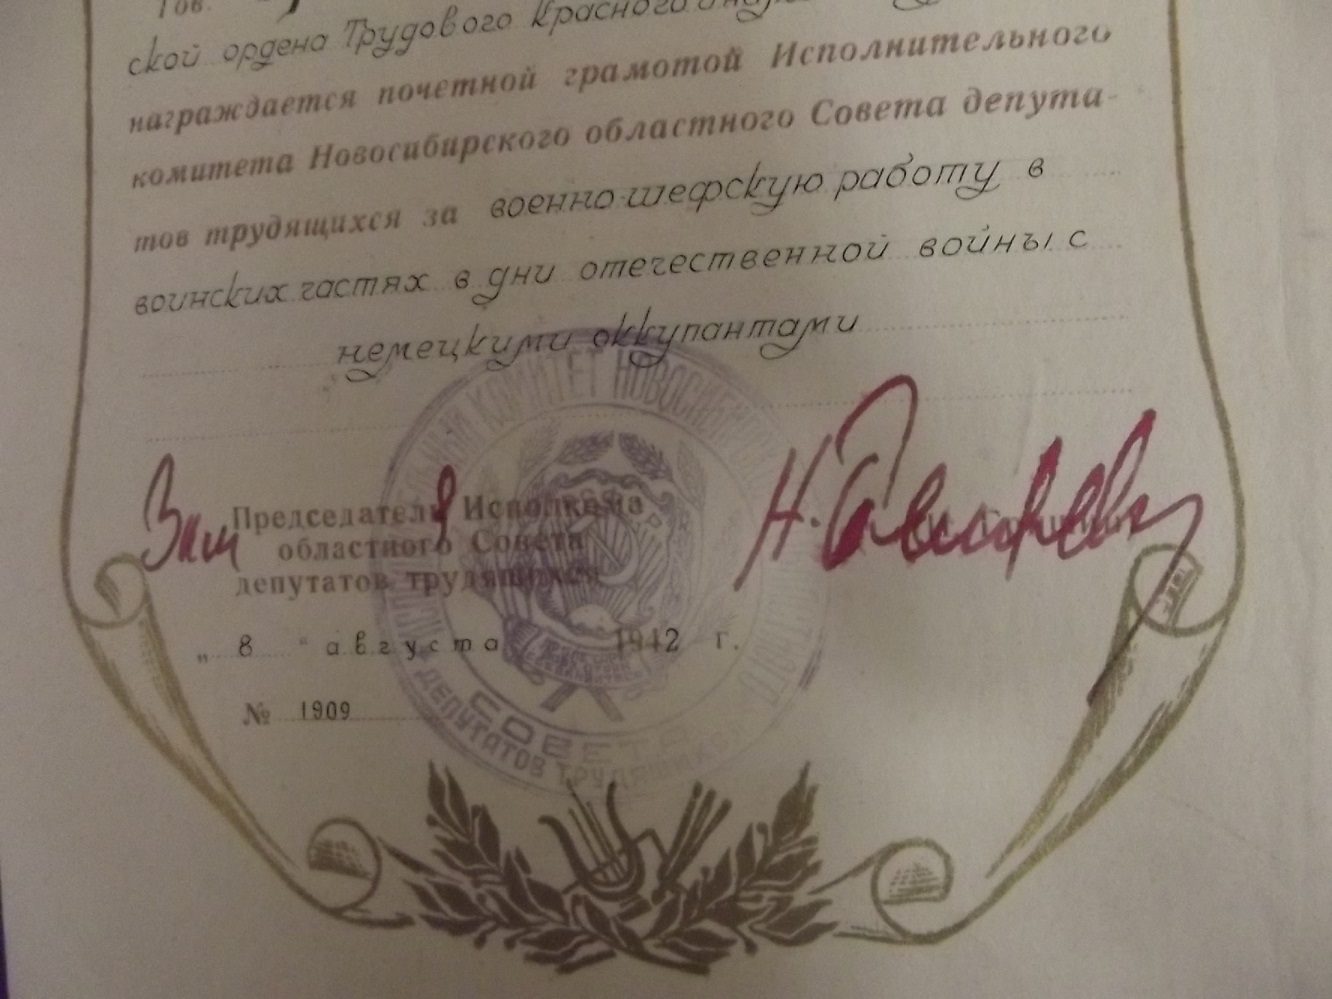 Тов.
ской ордена Трудового Красного
награждается почетной грамотой Исполнительного
комитета Новосибирского областного Совета депута-
тов трудящихся за военно-шефскую работу в
воинских частях в дни отечественной войны с
немецкими оккупантами
Зам Председателя Исполкома
областного Совета
депутатов трудящихся
„ 8 " августа 1942 г.
№ 1909
КОМИТЕТ НОВОСИБИРСКОГО
СОВЕТА
ДЕПУТАТОВ ТРУДЯЩИХСЯ